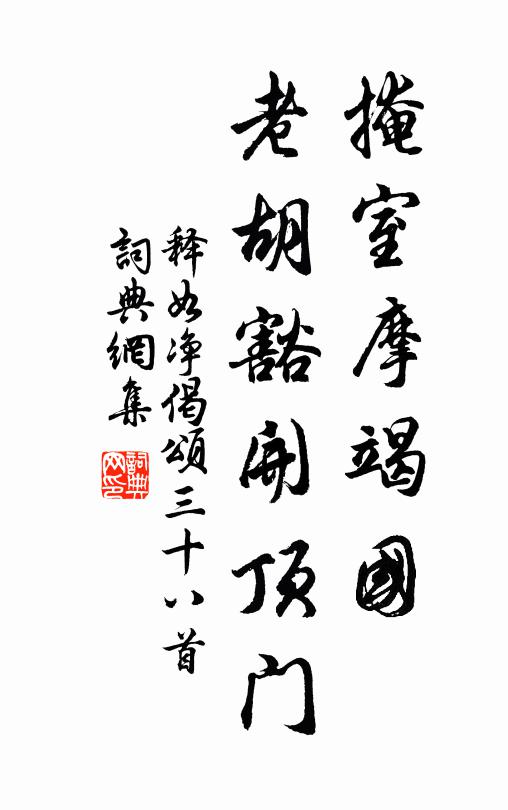 掩室摩竭國
老胡豁開顶门
释如净偈頌三十八首
詞典網集
詞典网印